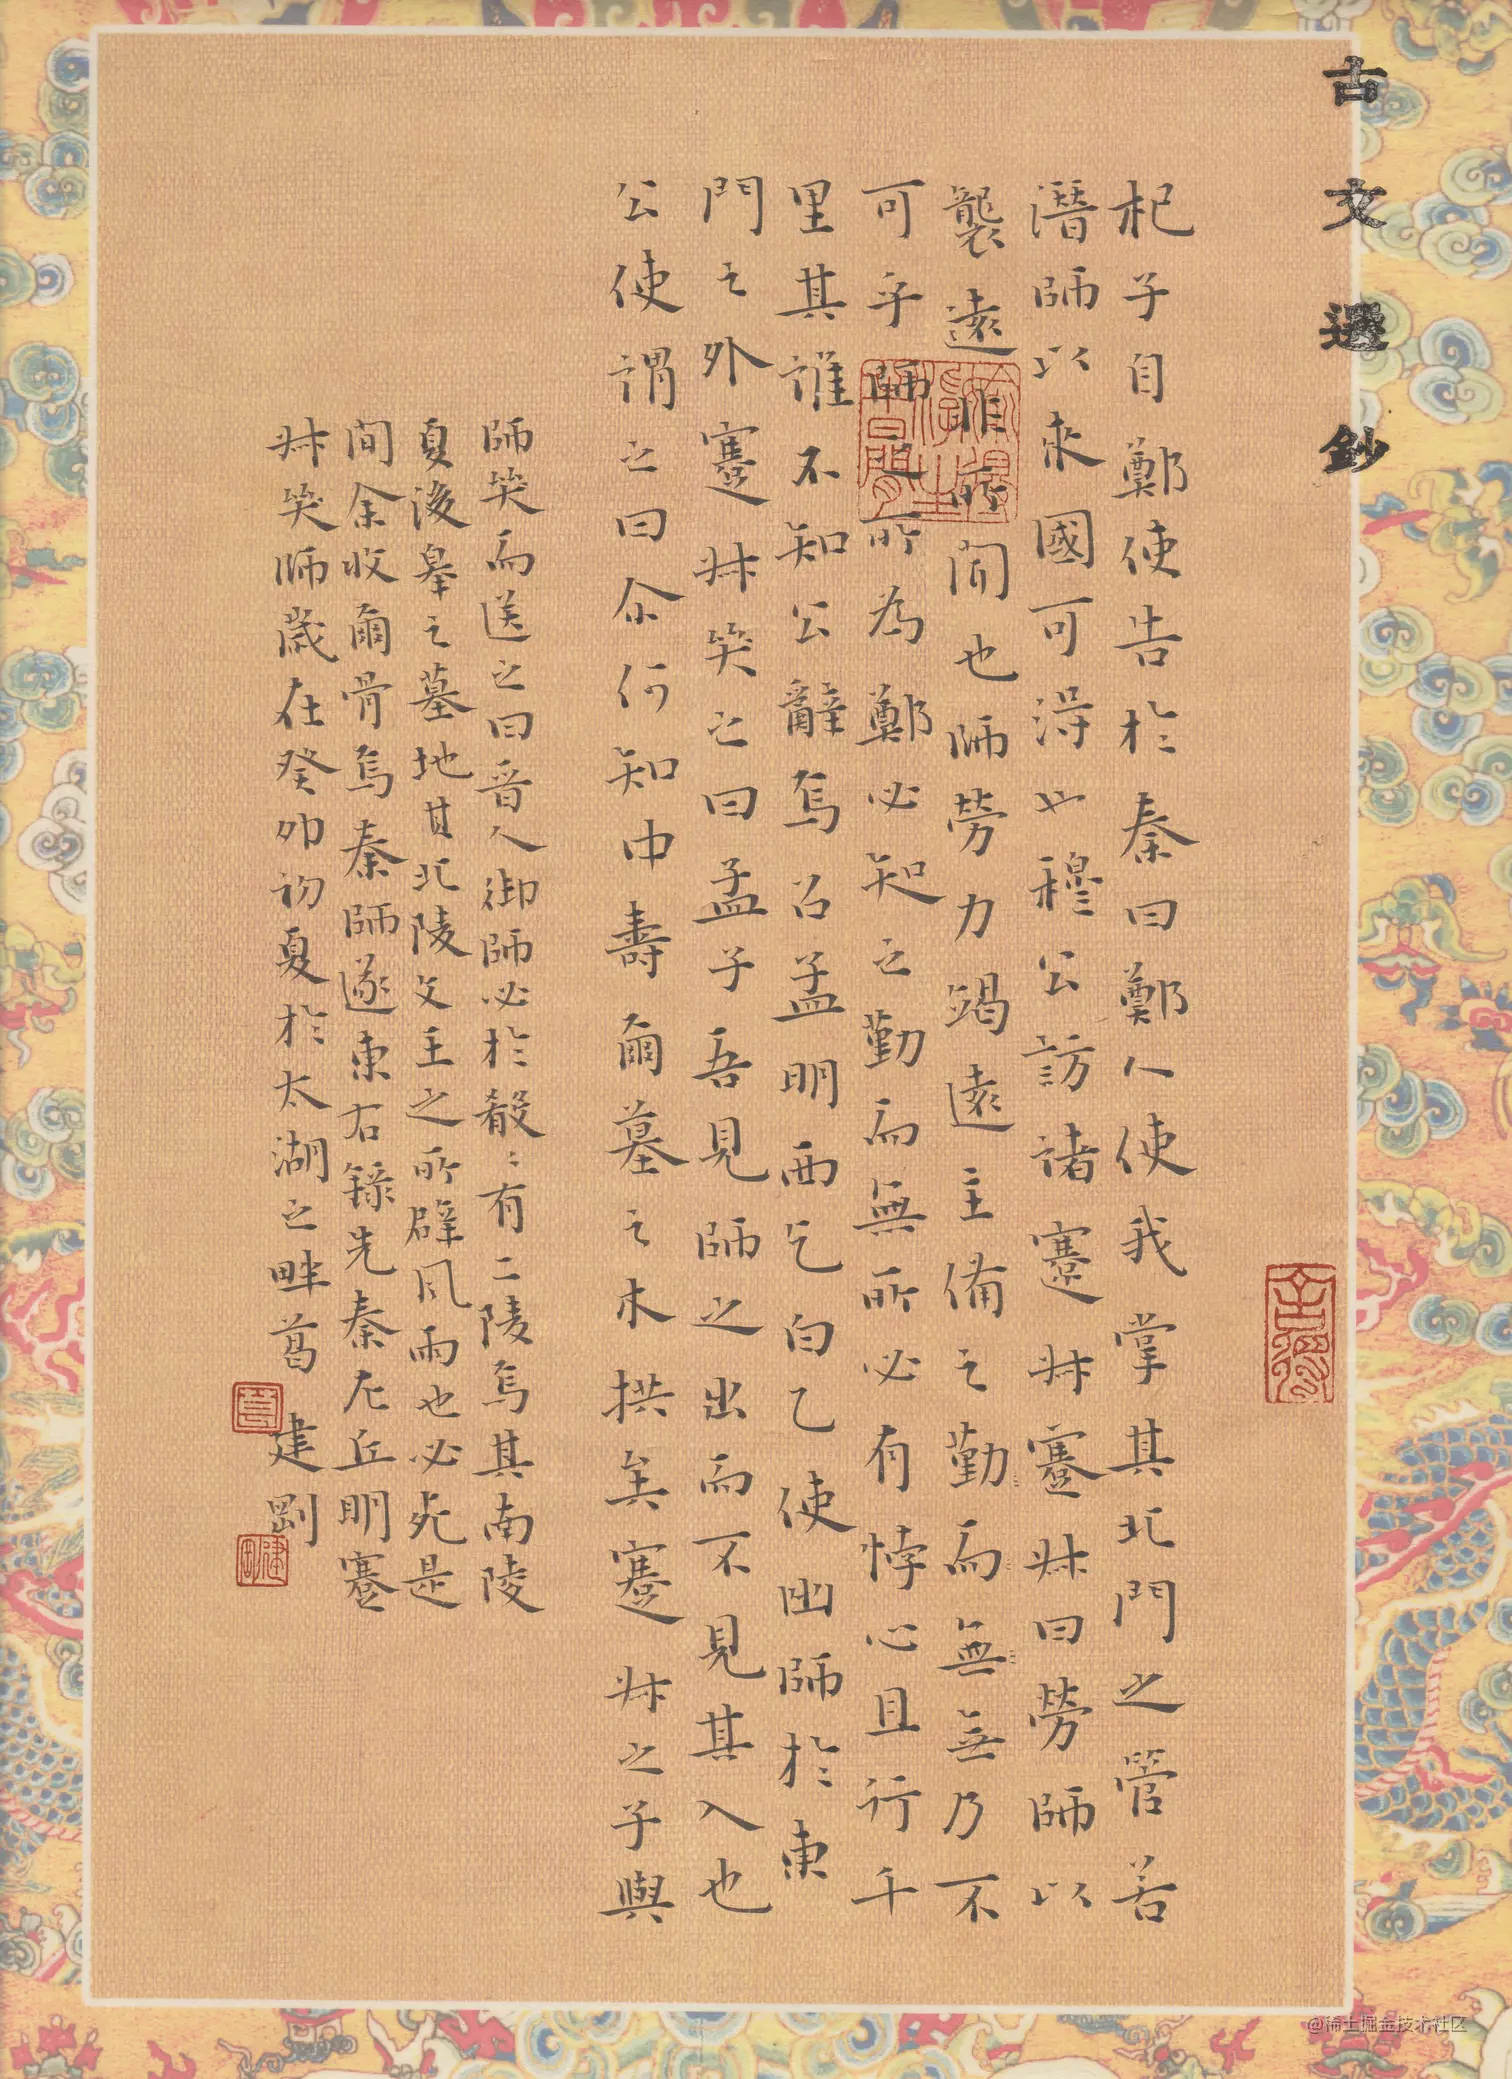 古文選鈔
杞子自鄭使告於秦曰鄭人使我掌其北門之管若
潛師以來國可得也穆公訪諸蹇叔蹇叔曰勞師以
襲遠非所聞也師勞力竭遠主備之勤而無無乃不
可乎師之所為鄭必知之勤而無所必有悖心且行千
里其誰不知公辭焉召孟明西乞白乙使出師於東
門之外蹇叔哭之曰孟子吾見師之出而不見其入也
公使謂之曰尒何知中壽爾墓之木拱矣蹇叔之子與
師哭而送之曰晉人御師必於殽〻有二陵焉其南陵
夏後皋之墓地其北陵文王之所辟風雨也必死是
間余收爾骨焉秦師遂東右錄先秦左丘明蹇
叔哭師歲在癸卯初夏於太湖之畔葛建剛
建剛
@稀土掘金技术社区